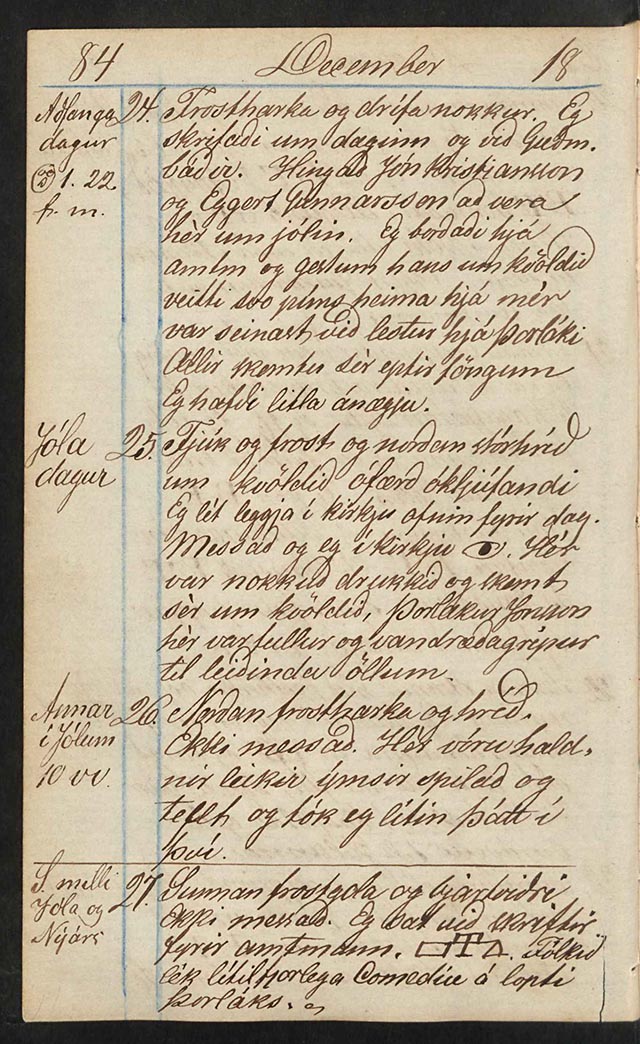 84 December 18
Aðfanga 24. Frostharka og drífa nokkur. Eg
dagur skrifaði um daginn og við Guðm.
1. 22 báðir. Hingað Jón Kristjansson
f. m. og Eggert Gunnarsson að vera
hèr um jólin. Eg borðaði hjá
amtm og gestum hans um kvöldið
veitti svo púns heima hjá mér
var seinast við lestur hjá Þorláki
Allir skemtu sèr eptir föngum
Eg hafði litla ánægju.
Jóla 25. Fjúk og frost og norðan stórhríð
dagur um kvöldið ófærð ókljúfandi
Eg lét leggja í kirkju ofnin fyrir dag.
Messað og eg í kirkju. Hér
var nokkuð drukkið og skemt
sèr um kvöldið, Þorlákur Jonsson
hèr var fullur og vandræðagripur
til leiðinda öllum.
Annar 26. Norðan frostharka og hríð.
í Jólum Ekki messað. Hér vóru hald-
10 vv. nir leikir ýmsir spilað og
teflt og tók eg lítin þátt í
því.
S. milli 27. Sunnan frostgola og bjartviðri
Jóla og Ekki messað. Eg sat við skriftir
Nýárs fyrir amtmann. Fólkið
lék lítilfjorlega Comedíu á lopti
Þorláks.